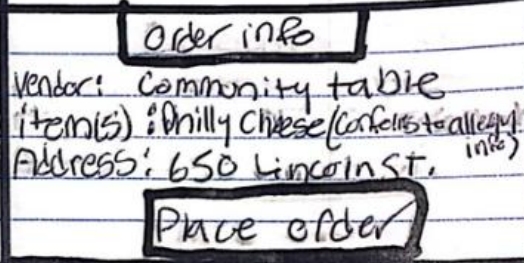 Order info
Vendor: Community table
item(s) : Philly Cheese (Confers to allergy info)
Address: 650 Lincoln St.
Place order